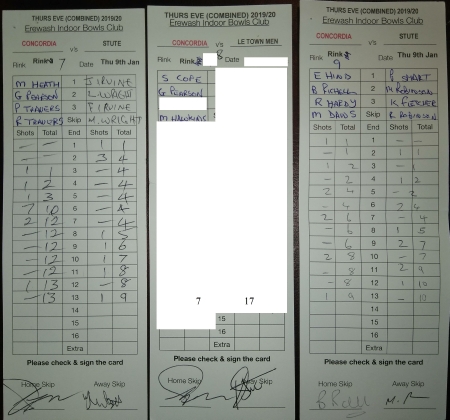 THURS EVE (COMBINED) 2019/20
Erewash Indoor Bowls Club
CONCORDIA v's STUTE
Rink 7 Date Thu 9th Jan
M HEATH 1 J IRVINE
G PEARSON 2 L WRIGHT
P TRAVERS 3 F IRVINE
R TRAVERS Skip M. WRIGHT
Shots Total End Shots Total
— — 1 1 1
— — 2 3 4
1 1 3 — 4
1 2 4 — 4
1 3 5 — 4
7 10 6 — 4
2 12 7 — 4
— 12 8 1 5
— 12 9 1 6
— 12 10 1 7
— 12 11 1 8
1 13 12 — 8
— 13 13 1 9
14
15
16
Extra
Please check & sign the card
Home Skip Away Skip
THURS EVE (COMBINED) 2019/20
Erewash Indoor Bowls Club
CONCORDIA v's LE TOWN MEN
Rink 8
S COPE
G PEARSON
M HAWKINS
7 17
15
16
Extra
Please check & sign the card
Home Skip Away Skip
THURS EVE (COMBINED) 2019/20
Erewash Indoor Bowls Club
CONCORDIA v's STUTE
Rink 9 Date Thu 9th Jan
E HIND 1
B PICHELL 2 M ROBINSON
R HARDY 3 K FLETCHER
M DAVIS Skip R ROBINSON
Shots Total End Shots Total
1 1 1 — —
— 1 2 1 1
1 2 3 — 1
— 2 4 1 2
2 4 5 — 2
— 4 6 2 4
2 6 7 — 4
— 6 8 1 5
— 6 9 2 7
2 8 10 — 7
— 8 11 2 9
— 8 12 1 10
1 9 13 — 10
14
15
16
Extra
Please check & sign the card
Home Skip Away Skip